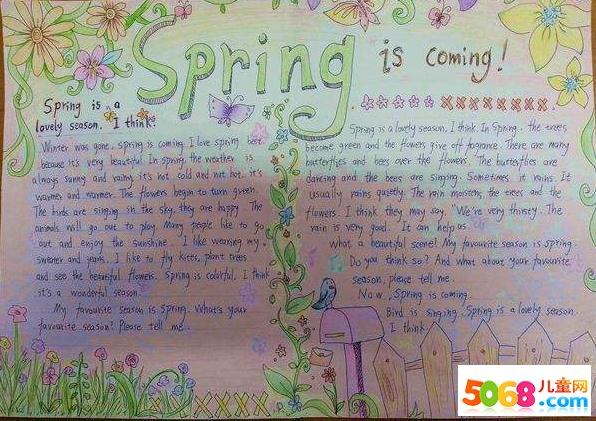 Spring is coming!
Spring is a
lovely season. I think!
Winter was gone, spring is coming. I love spring best
because it's very beautiful. In spring, the weather is
always sunny and rainy, it's not cold and not hot. it's
warmer and warmer. The flowers begin to turn green.
The birds are singing in the sky, they are happy. The
animals will go out to play. Many people like to go
out and enjoy the sunshine. I like wearing my
sweater and jeans. I like to fly kites, plant trees
and see the beautiful flowers. Spring is colorful, I think
it's a wonderful season.
My favourite season is spring. What's your
favourite season? Please tell me.
Spring is a lovely season, I think. In Spring. the trees
become green and the flowers give off fragrance. There are many
butterflies and bees over the flowers. The butterflies are
dancing and the bees are singing. Sometimes it rains. It
usually rains quietly. The rain moistens the trees and the
flowers. I think they may say, "We're very thirsty. The
rain is very good. It can help us.
What a beautiful scene! My favourite season is spring.
Do you think so? And what about your favourite
season, please tell me.
Now, Spring is coming.
Bird is singing, Spring is a lovely season.
I think.
5068儿童网
.com